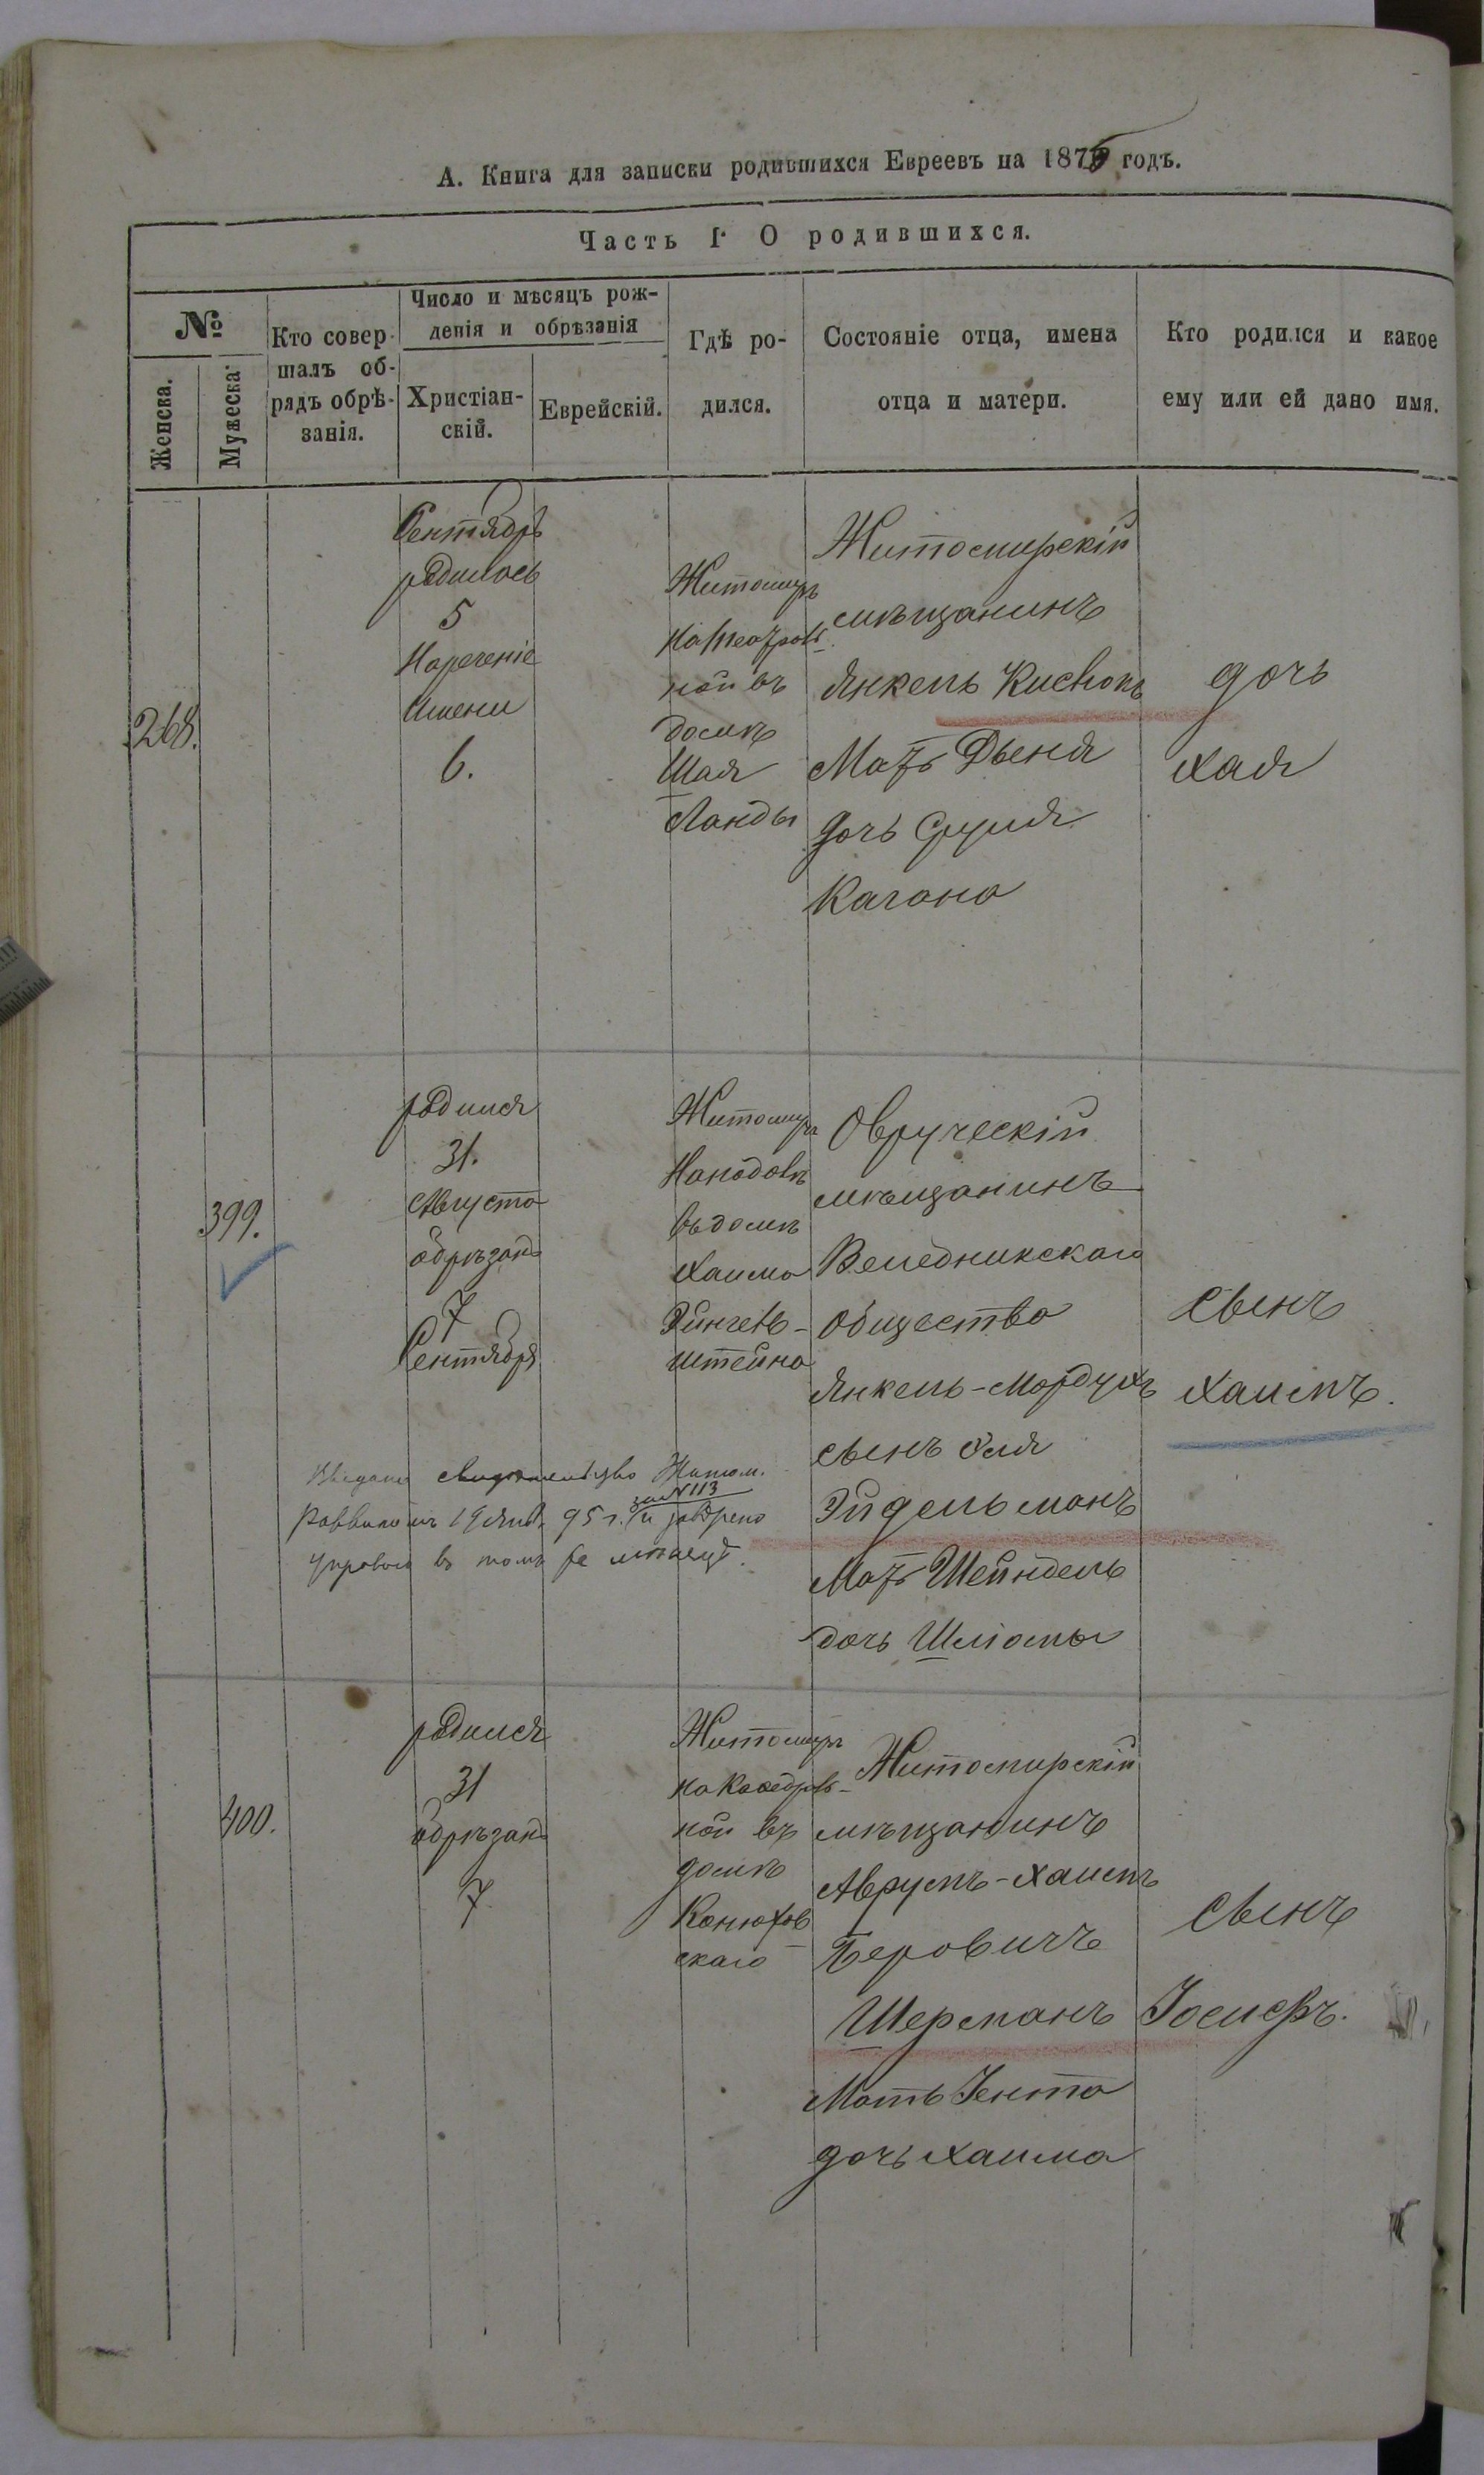 А. Книга для записки родившихся Евреевъ на 1875 годъ.
Часть I. О родившихся.
№
Женска.
Мужеска.
Кто совер-
шалъ об-
рядъ обрѣ-
занія.
Число и мѣсяцъ рож-
денія и обрѣзанія
Христіан-
скій.
Еврейскій.
Гдѣ ро-
дился.
Состояніе отца, имена
отца и матери.
Кто родился и какое
ему или ей дано имя.
268.
Сентябрь
родилась
5
Нареченіе
Имени
6.
Житомиръ
на Театраль
ной въ
домѣ
Шая
Ланды
Житомирскій
мѣщанинъ
Янкель
Мать
дочь Сруля
Кагана
дочь
Хая
399.
родился
31.
Августа
обрѣзанъ
7
Сентября
Житомиръ
въ домѣ
Хаима
штейна
Овруческій
мѣщанинъ
Веледникскаго
Общества
Янкель-Мордухъ
сынъ Эля
Эйдельманъ
Мать Шейндель
дочь Шліомы
сынъ
Хаимъ.
Выдано свидѣтельство Житом.
Раввиномъ 19 Янв. 95 г. за №113 и
Управою въ томъ же мѣсяцѣ.
400.
родился
31
обрѣзанъ
7
Житомиръ
на Каѳедраль-
ной въ
домѣ
Конюхов
скаго
Житомирскій
мѣщанинъ
Аврумъ-Хаимъ
Беровичъ
Шерманъ
Мать Іента
дочь Хаима
Сынъ
Іосифъ.